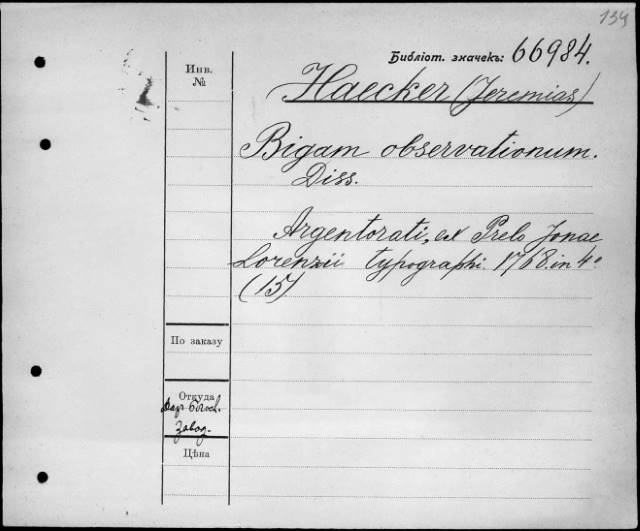 134
Библіот. значекъ: 66984.
Инв.
№
Haecker (Jeremias)
Bigam observationum.
Diss.
Argentorati, ex Prelo Jonae
Lorenzii typographi. 1768. in 4°
(15)
По заказу
Откуда
Завод.
Цѣна